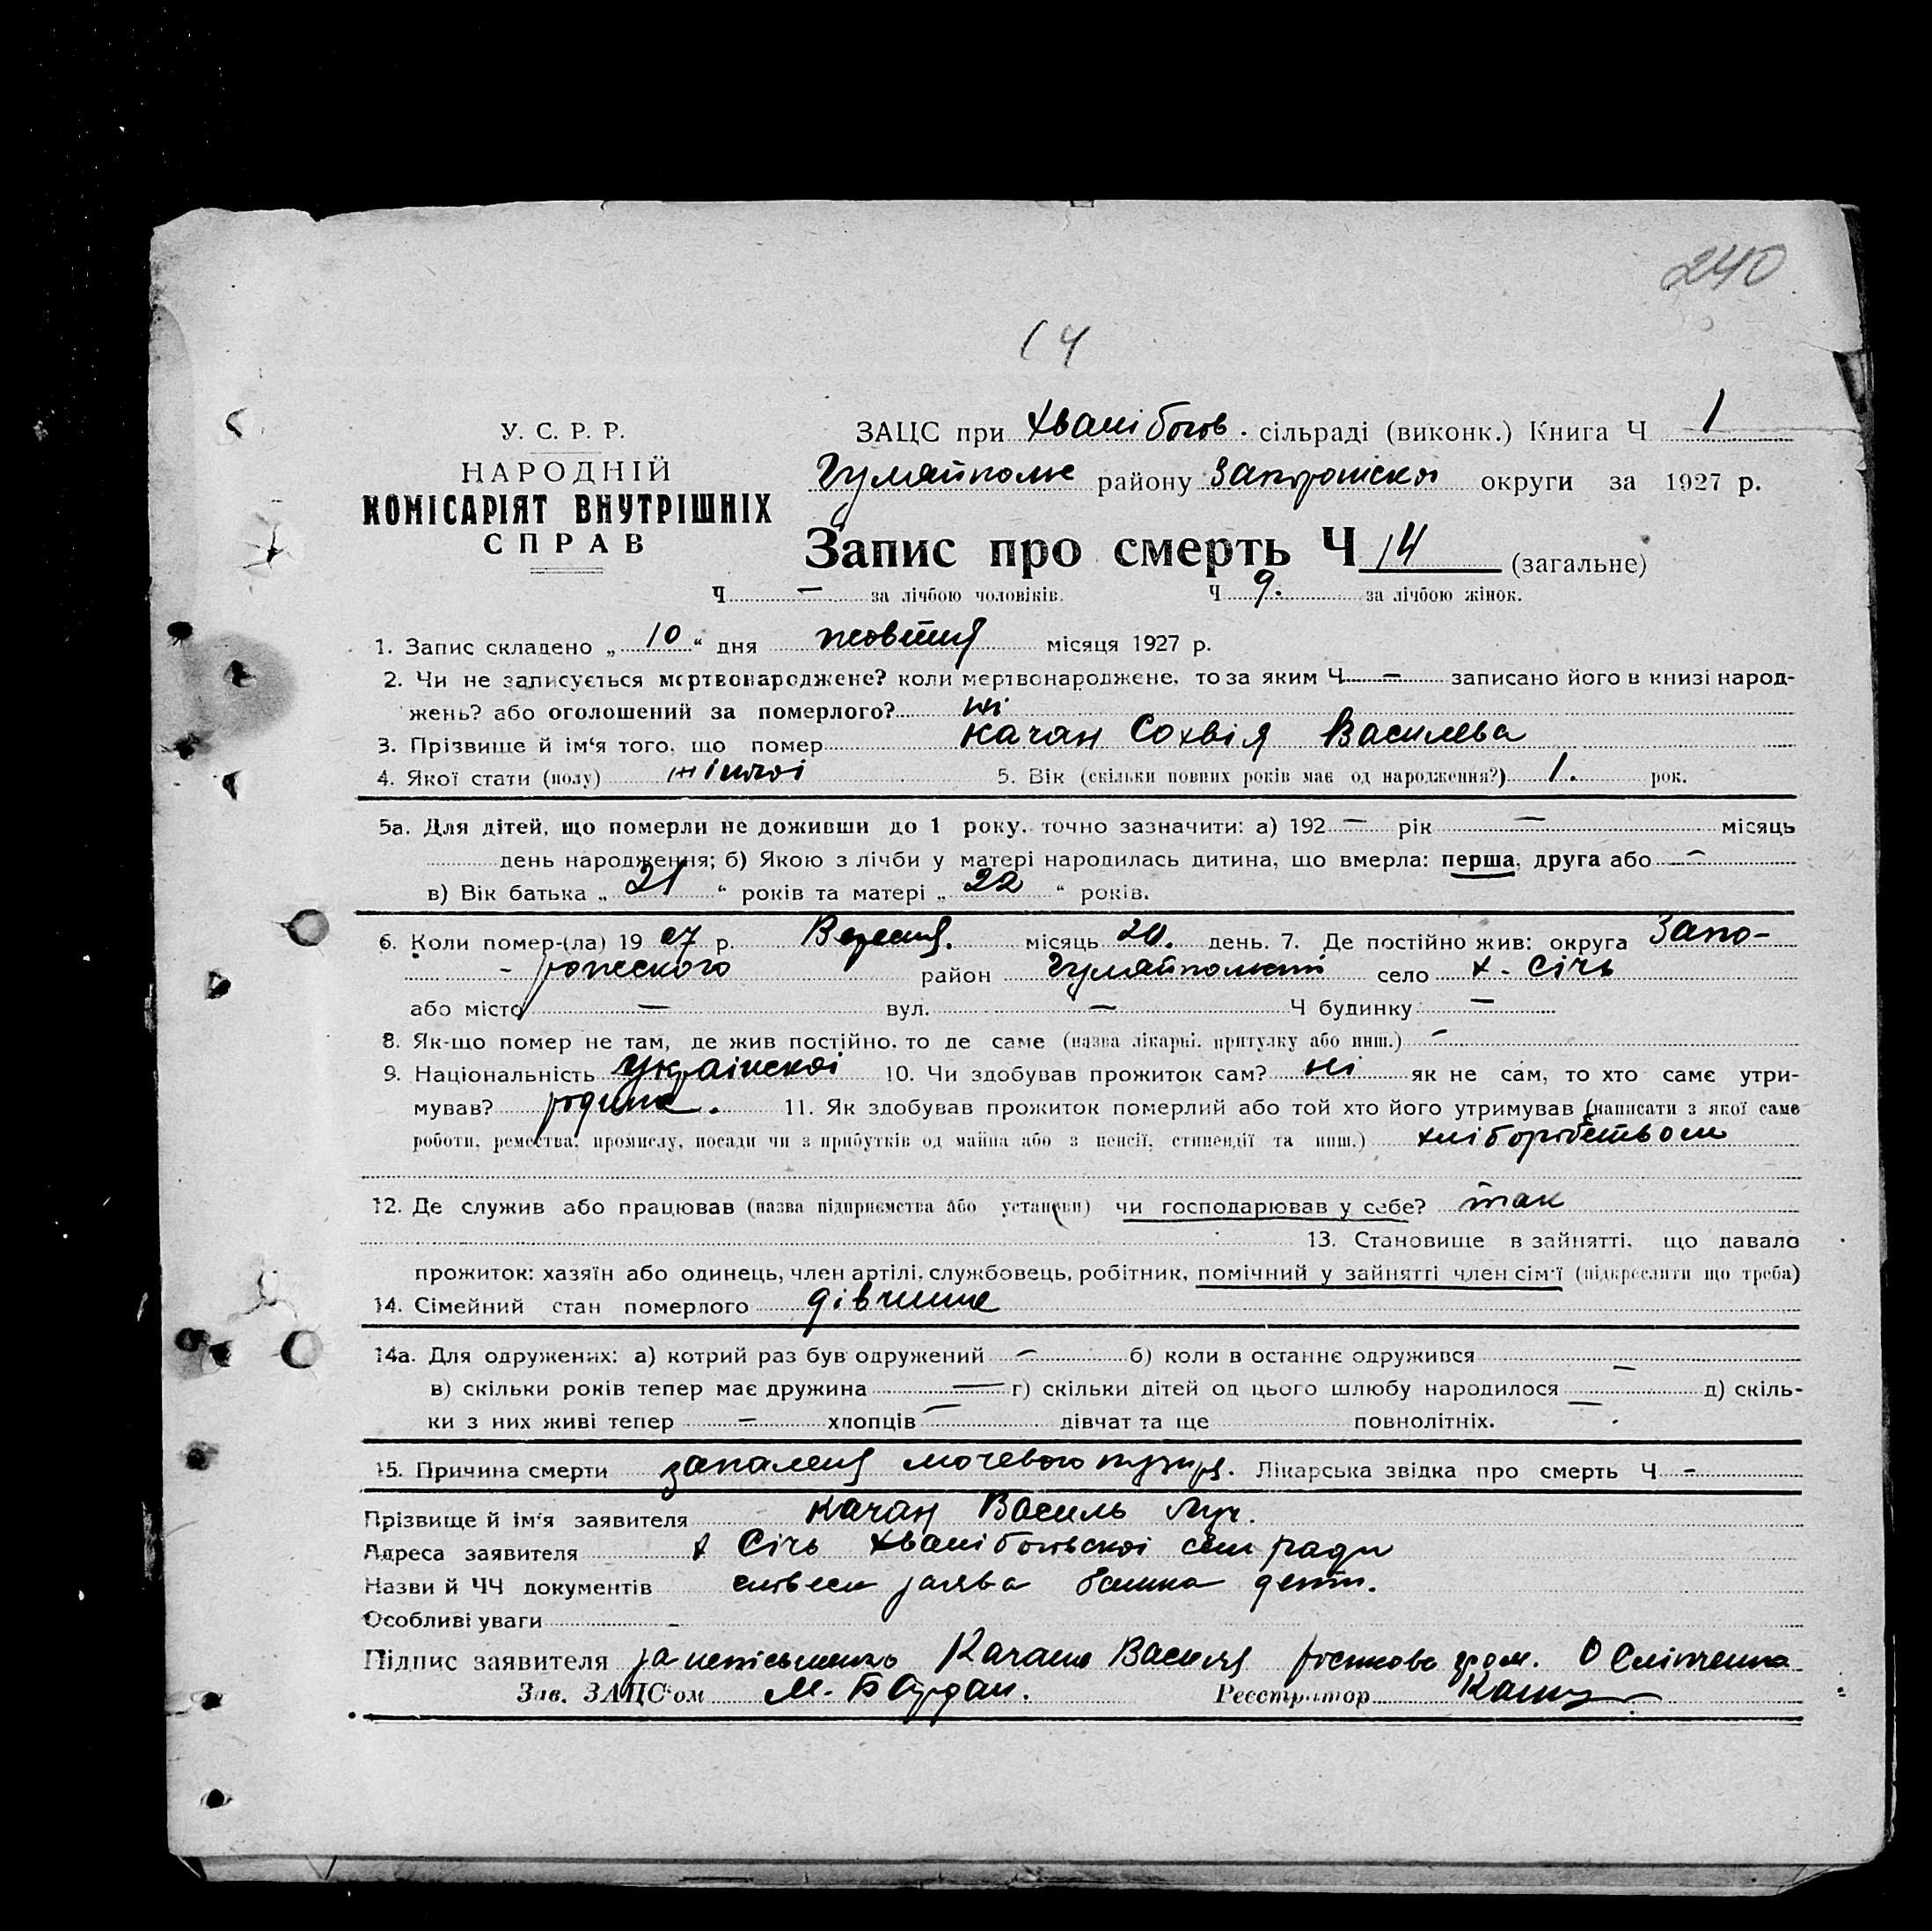 240
14
У. С. Р. Р.
НАРОДНІЙ
КОМІСАРІЯТ ВНУТРІШНІХ
СПРАВ
ЗАЦС при Хвалібогов. сільраді (виконк.) Книга Ч 1
Гуляйполье району Запоріжскоі округи за 1927 р.
Запис про смерть Ч 14 (загальне)
Ч — за лічбою чоловіків. Ч 9. за лічбою жінок.
1. Запис складено „ 10 “ дня жовтня місяця 1927 р.
2. Чи не записується мертвонароджене? коли мертвонароджене, то за яким Ч — записано його в книзі народ-
жень? або оголошений за померлого? ні
3. Прізвище й ім‘я того, що помер Качан Сохвія Васильва
4. Якої стати (полу) жіночоі 5. Вік (скільки повних років має од народження?) 1. рок.
5а. Для дітей, що померли не доживши до 1 року, точно зазначити: а) 192 — рік — місяць
день народження; б) Якою з лічби у матері народилась дитина, що вмерла: перша, друга або —
в) Вік батька „ 21 “ років та матері „ 22 “ років.
6. Коли помер-(ла) 19 27 р. Вересня. місяць 20. день. 7. Де постійно жив: округа Запо-
- рожского район Гуляйпольский село х. Січь
або місто — вул. — Ч будинку —
8. Як-що помер не там, де жив постійно, то де саме (назва лікарні, притулку або инш.) —
9. Національність Украінскоі 10. Чи здобував прожиток сам? ні як не сам, то хто саме утри-
мував? родина. 11. Як здобував прожиток померлий або той хто його утримував (написати з якої саме
роботи, ремества, промислу, посади чи з прибутків од майна або з пенсії, стипендії та инш.) хліборобством
12. Де служив або працював (назва підприємства або установи) чи господарював у себе? так
13. Становище в зайнятті, що давало
прожиток: хазяїн або одинець, член артілі, службовець, робітник, помічний у зайнятті член сім‘ї (підкреслити що треба)
14. Сімейний стан померлого дівчина
14а. Для одружених: а) котрий раз був одружений — б) коли в останнє одружився —
в) скільки років тепер має дружина — г) скільки дітей од цього шлюбу народилося — д) скіль-
ки з них живі тепер — хлопців — дівчат та ще — повнолітніх.
15. Причина смерти запаленя мочевого пузиря. Лікарська звідка про смерть Ч —
Прізвище й ім‘я заявителя Качан Василь
Адреса заявителя х Січь Хвалібоговскоі сіль ради
Назви й ЧЧ документів словесн заява батька
Особливі уваги —
Підпис заявителя за неписьменно Качана Василя гром. О
Зав. ЗАЦС‘ом М. Бурдан. Реєстратор